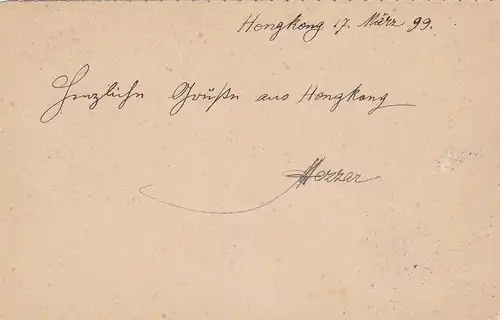 Hongkong 17. März 99.
Herzliche Grüße aus Hongkong